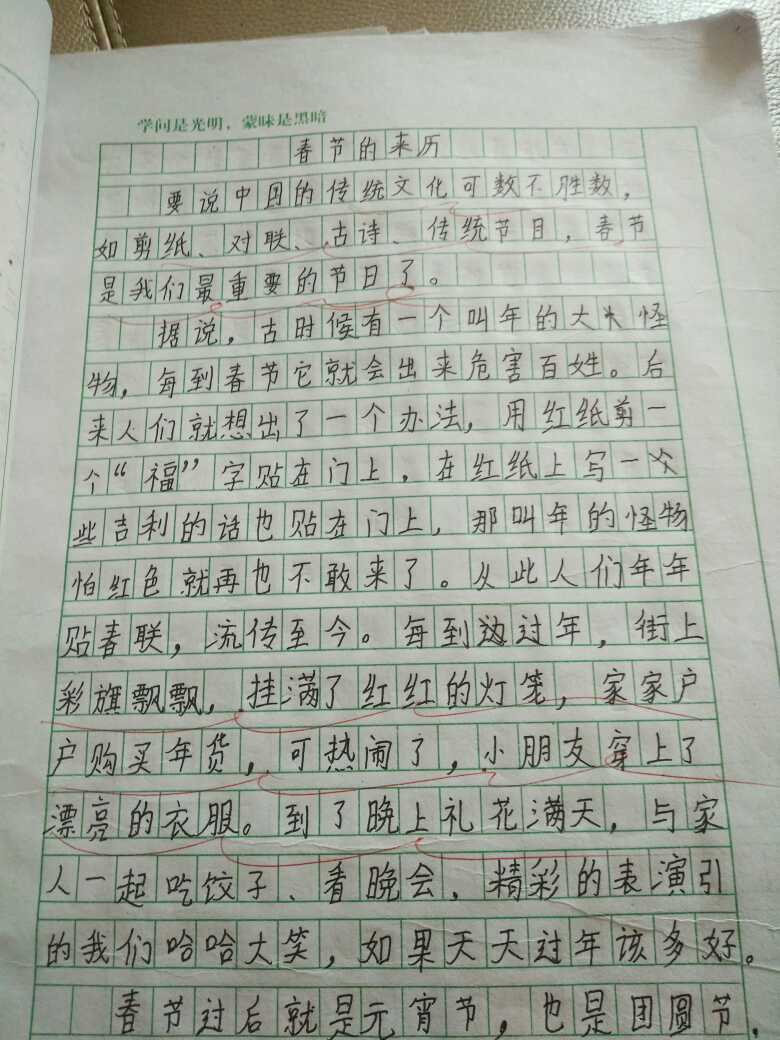 学问是光明，蒙昧是黑暗
春节的来历
要说中国的传统文化可数不胜数，
如剪纸、对联、古诗、传统节目，春节
是我们最重要的节日了。
据说，古时候有一个叫年的大怪
物，每到春节它就会出来危害百姓。后
来人们就想出了一个办法，用红纸剪一
个“福”字贴在门上，在红纸上写一
些吉利的话也贴在门上，那叫年的怪物
怕红色就再也不敢来了。从此人们年年
贴春联，流传至今。每到边过年，街上
彩旗飘飘，挂满了红红的灯笼，家家户
户购买年货，可热闹了，小朋友穿上了
漂亮的衣服。到了晚上礼花满天，与家
人一起吃饺子、看晚会，精彩的表演引
的我们哈哈大笑，如果天天过年该多好。
春节过后就是元宵节，也是团圆节，